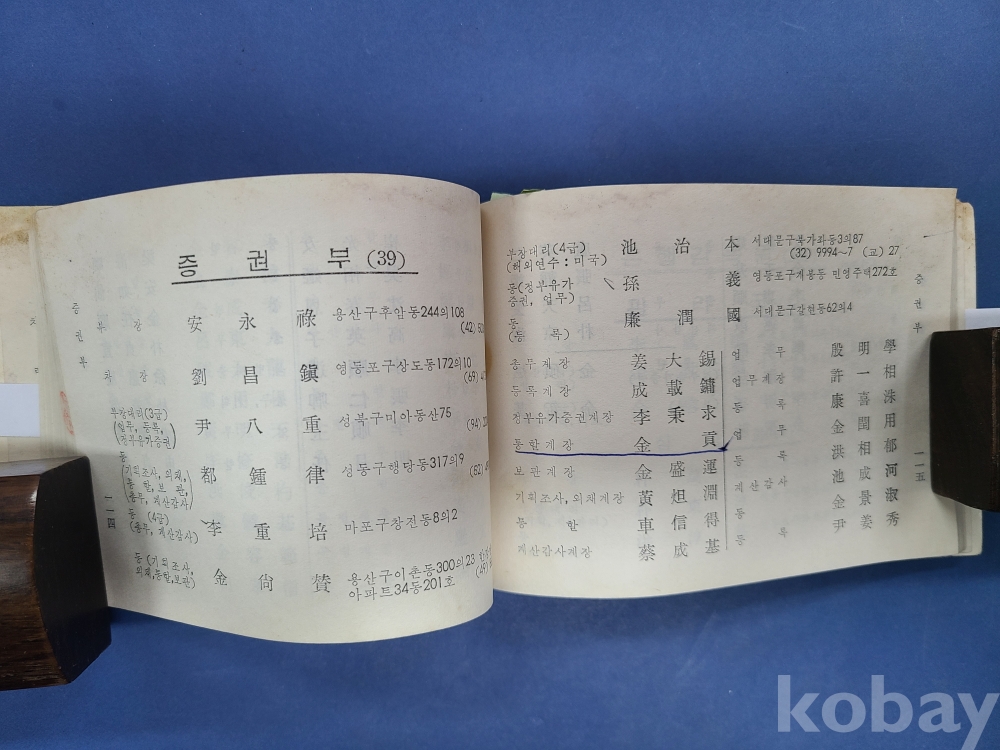 증권부 (39)
증권부
부장 安永祿 용산구후암동244의108
(42)
차장 劉昌鎭 영등포구상도동172의10
(69)
부장대리(3급)
(업무, 등록,
정부유가증권) 尹八重 성북구미아동산75
(94)
동
(기획조사, 외채,
통할, 보관,
총무, 계산감사) 都鍾律 성동구행당동317의9
(62)
동 (4급)
(총무, 계산감사) 李重培 마포구창전동8의2
동(기획조사,
외채,통할,보관) 金尙贊 용산구이촌동300의23
아파트34동201호
(49)
一一四
부장대리(4급)
(해외연수:미국) 池治本 서대문구북가좌동3의87
(32) 9994~7 (교) 27
동(정부유가
증권, 업무) 孫義 영등포구계봉동 민영주택272호
동
(등록) 廉潤國 서대문구갈현동62의4
총무계장 姜大錫
등록계장 成載鏞
정부유가증권계장 李秉求
통할계장 金貢
보관계장 金盛運
기획조사, 외채계장 黃坦淵
통할 車信得
계산감사계장 蔡成基
업무 殷明學
업무계장 許一相
등록 康喜洙
업무 金閏用
등록 洪相郁
계산감사 池成河
동 金景淑
등록 尹姜秀
증권부
一一五
kobay